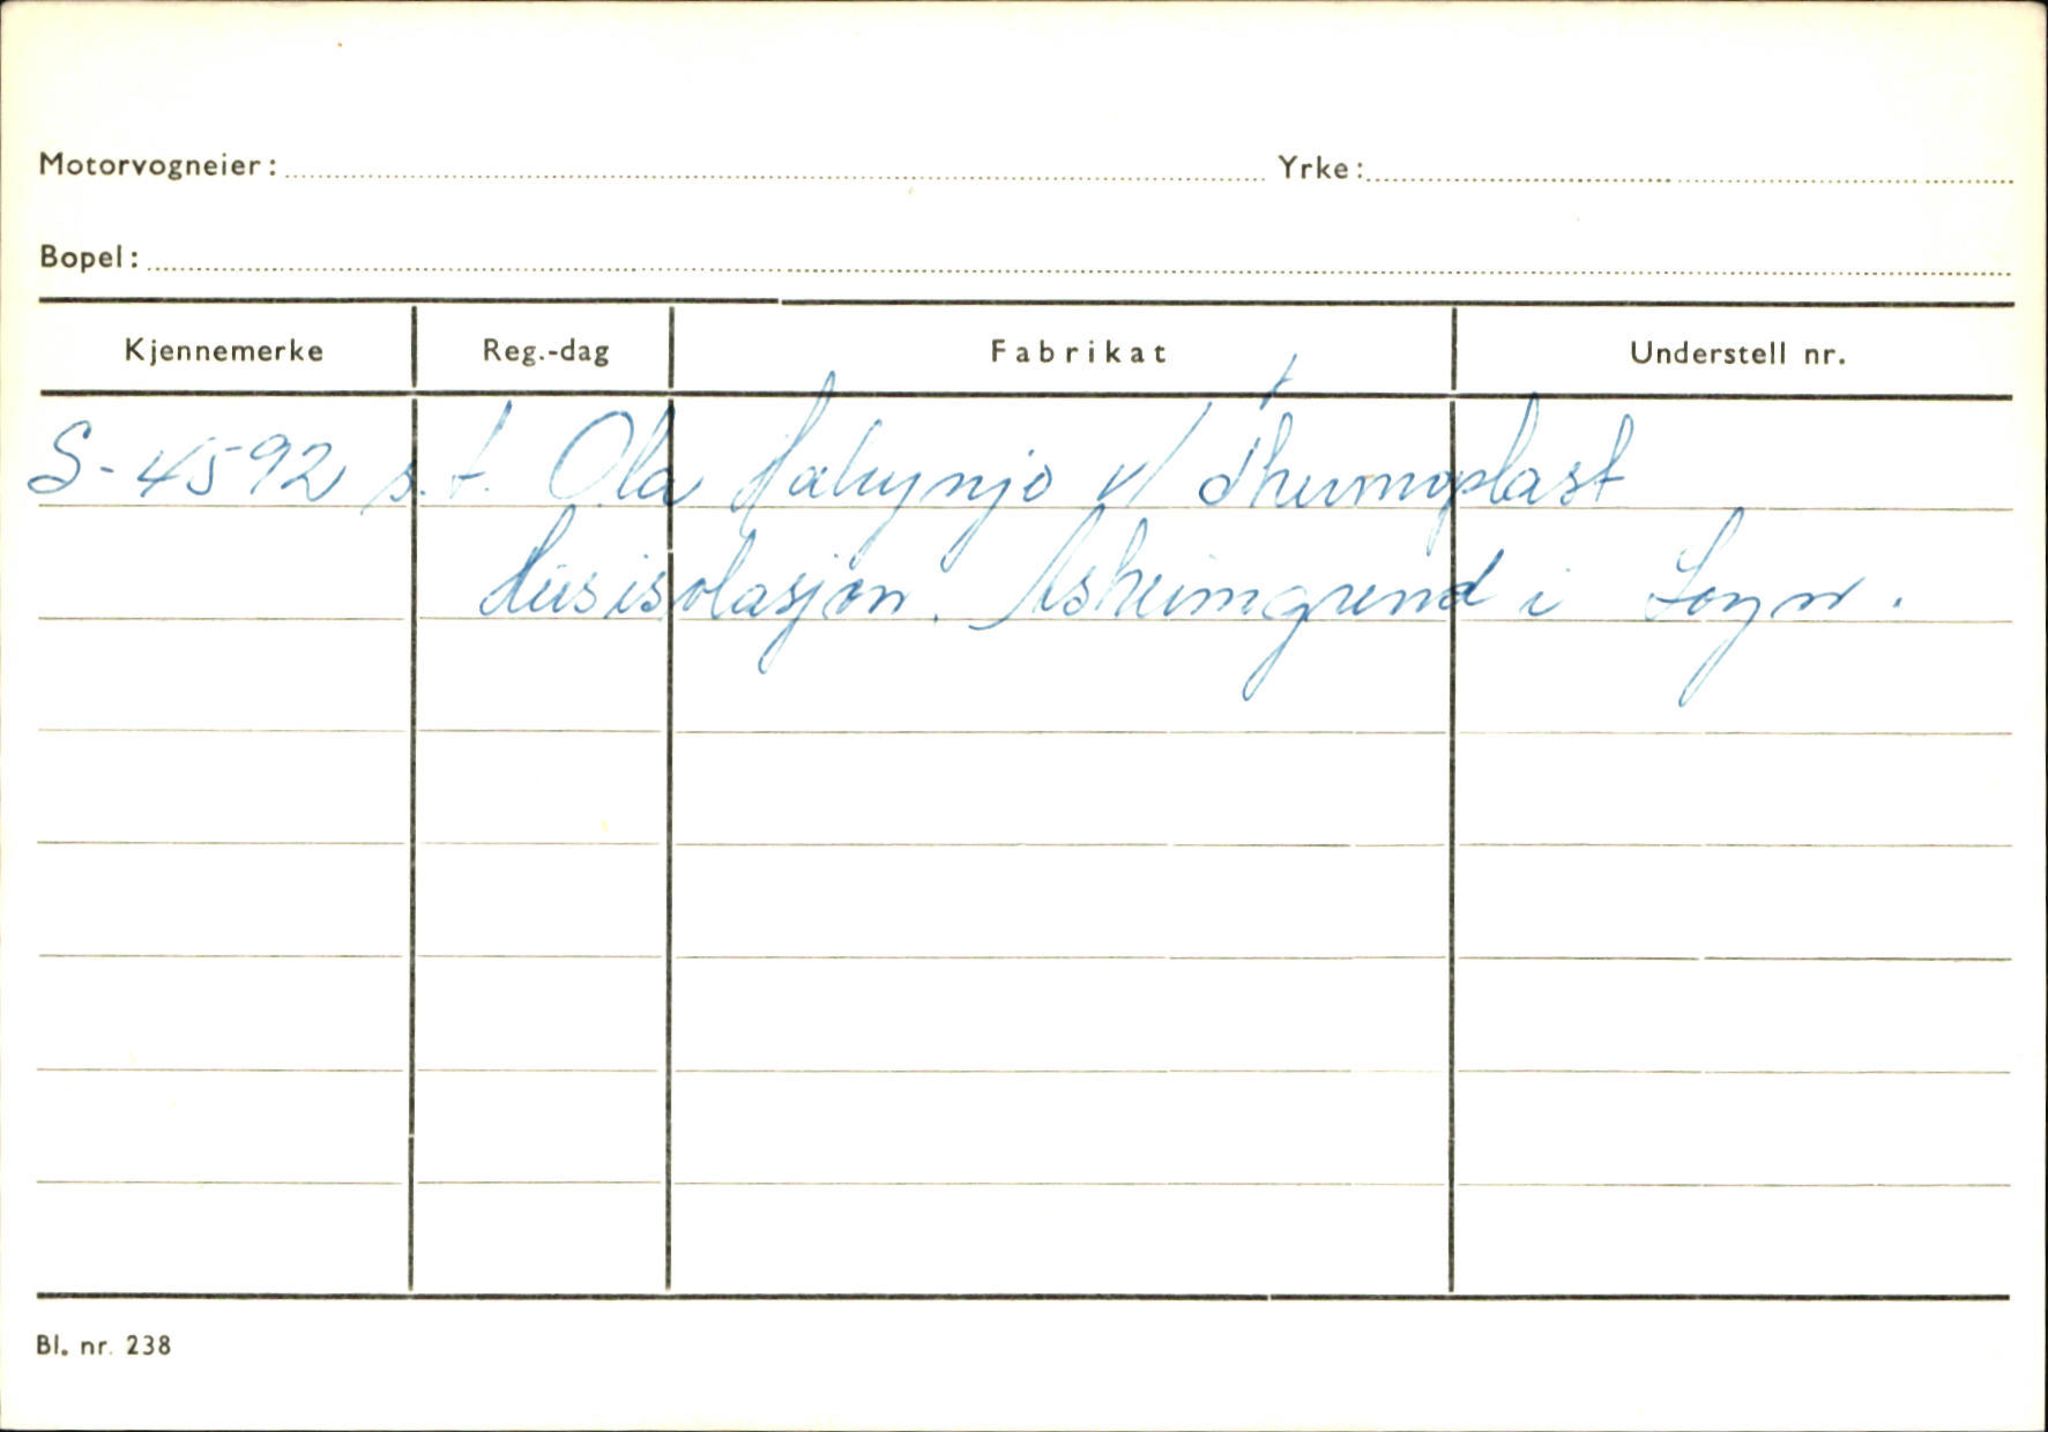 Motorvogneier: Yrke:
Bopel:
Kjennemerke Reg.-dag Fabrikat Understell nr.
S-4592 s.t. Ola v/ Thermoplast
Husisolasjon. Askeimgrend i Sogn.
Bl. nr. 238